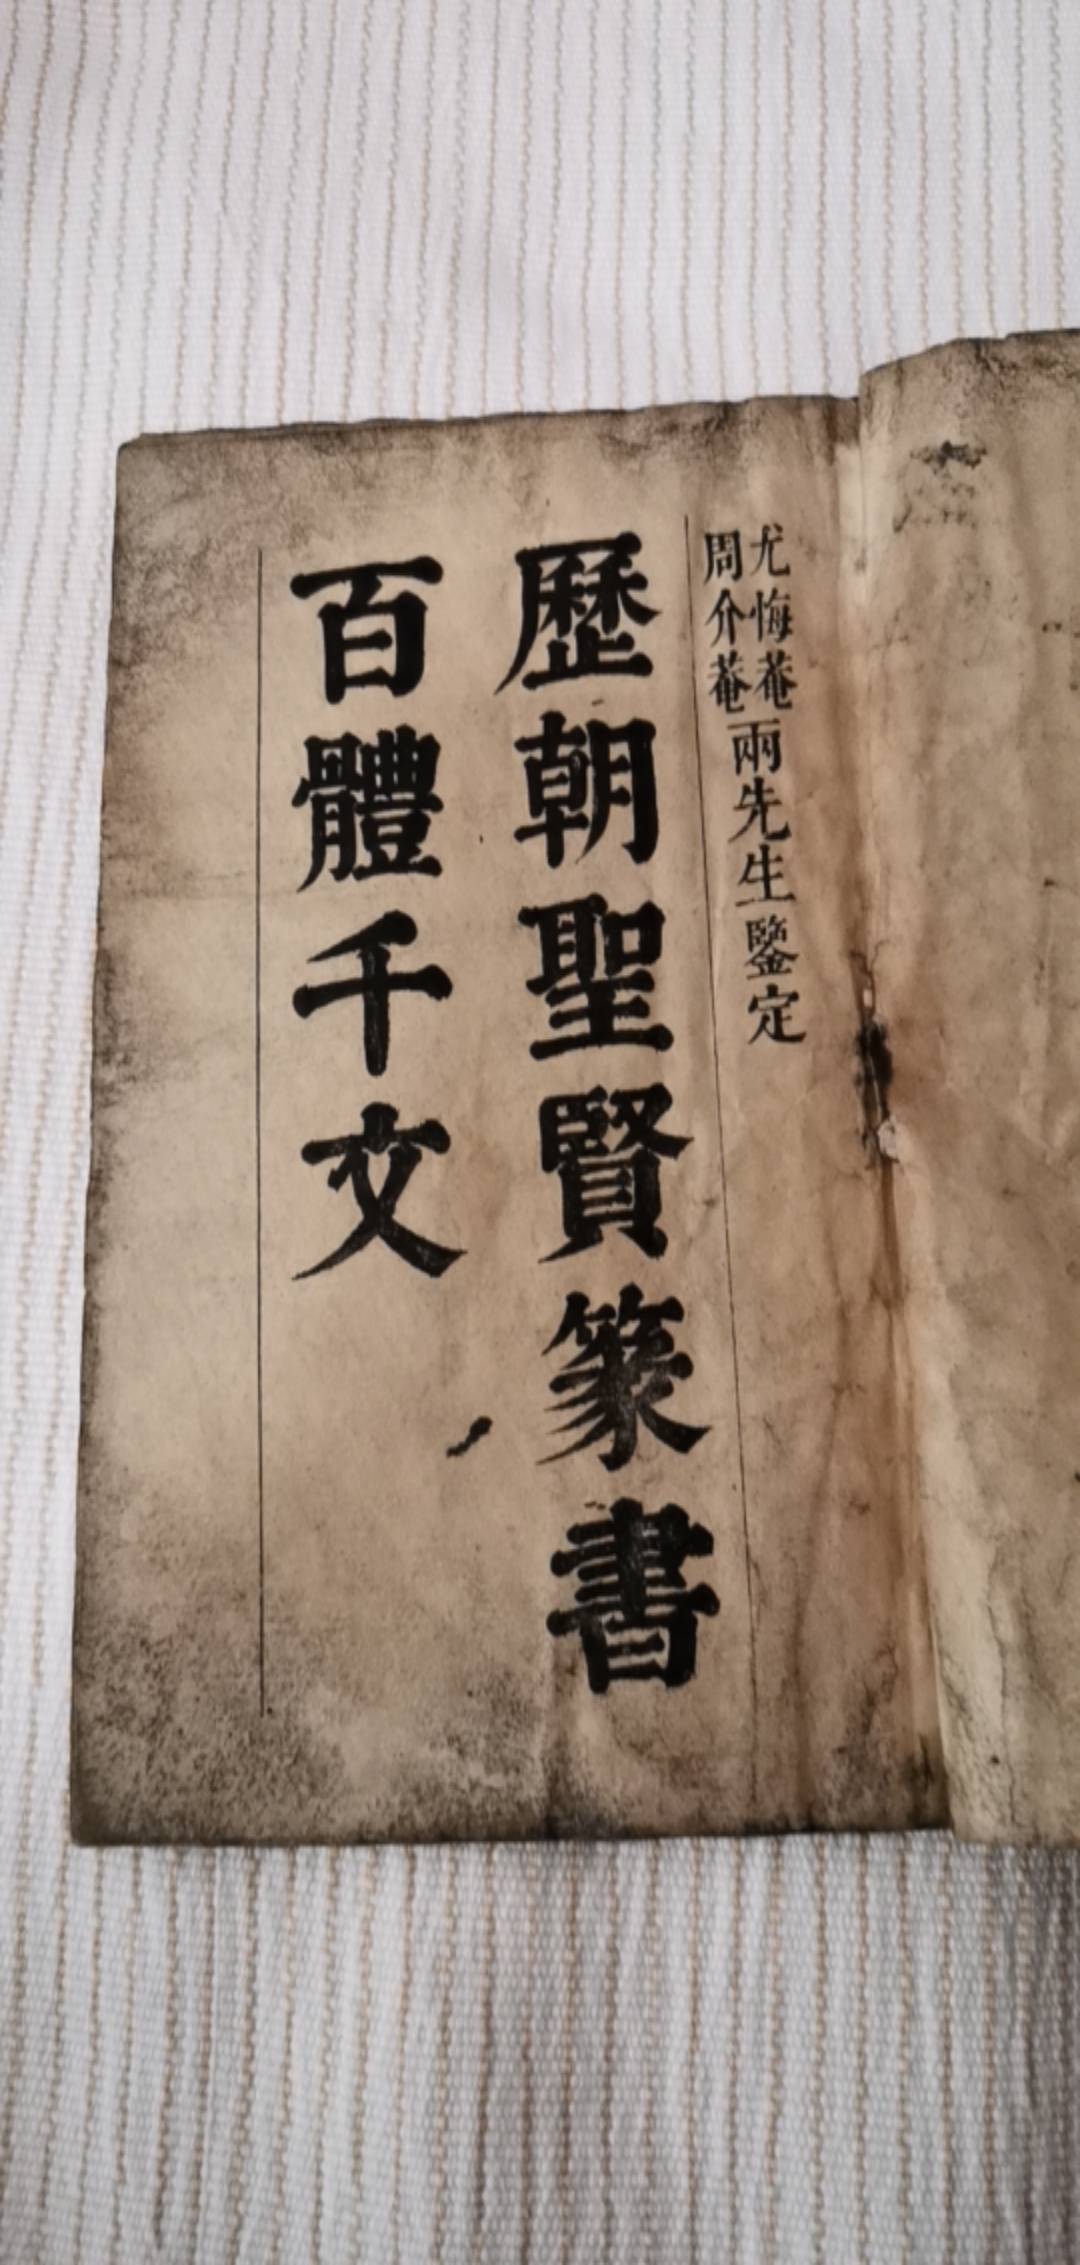 尤悔菴
周介菴
兩先生鑒定
歷朝聖賢篆書
百體千文